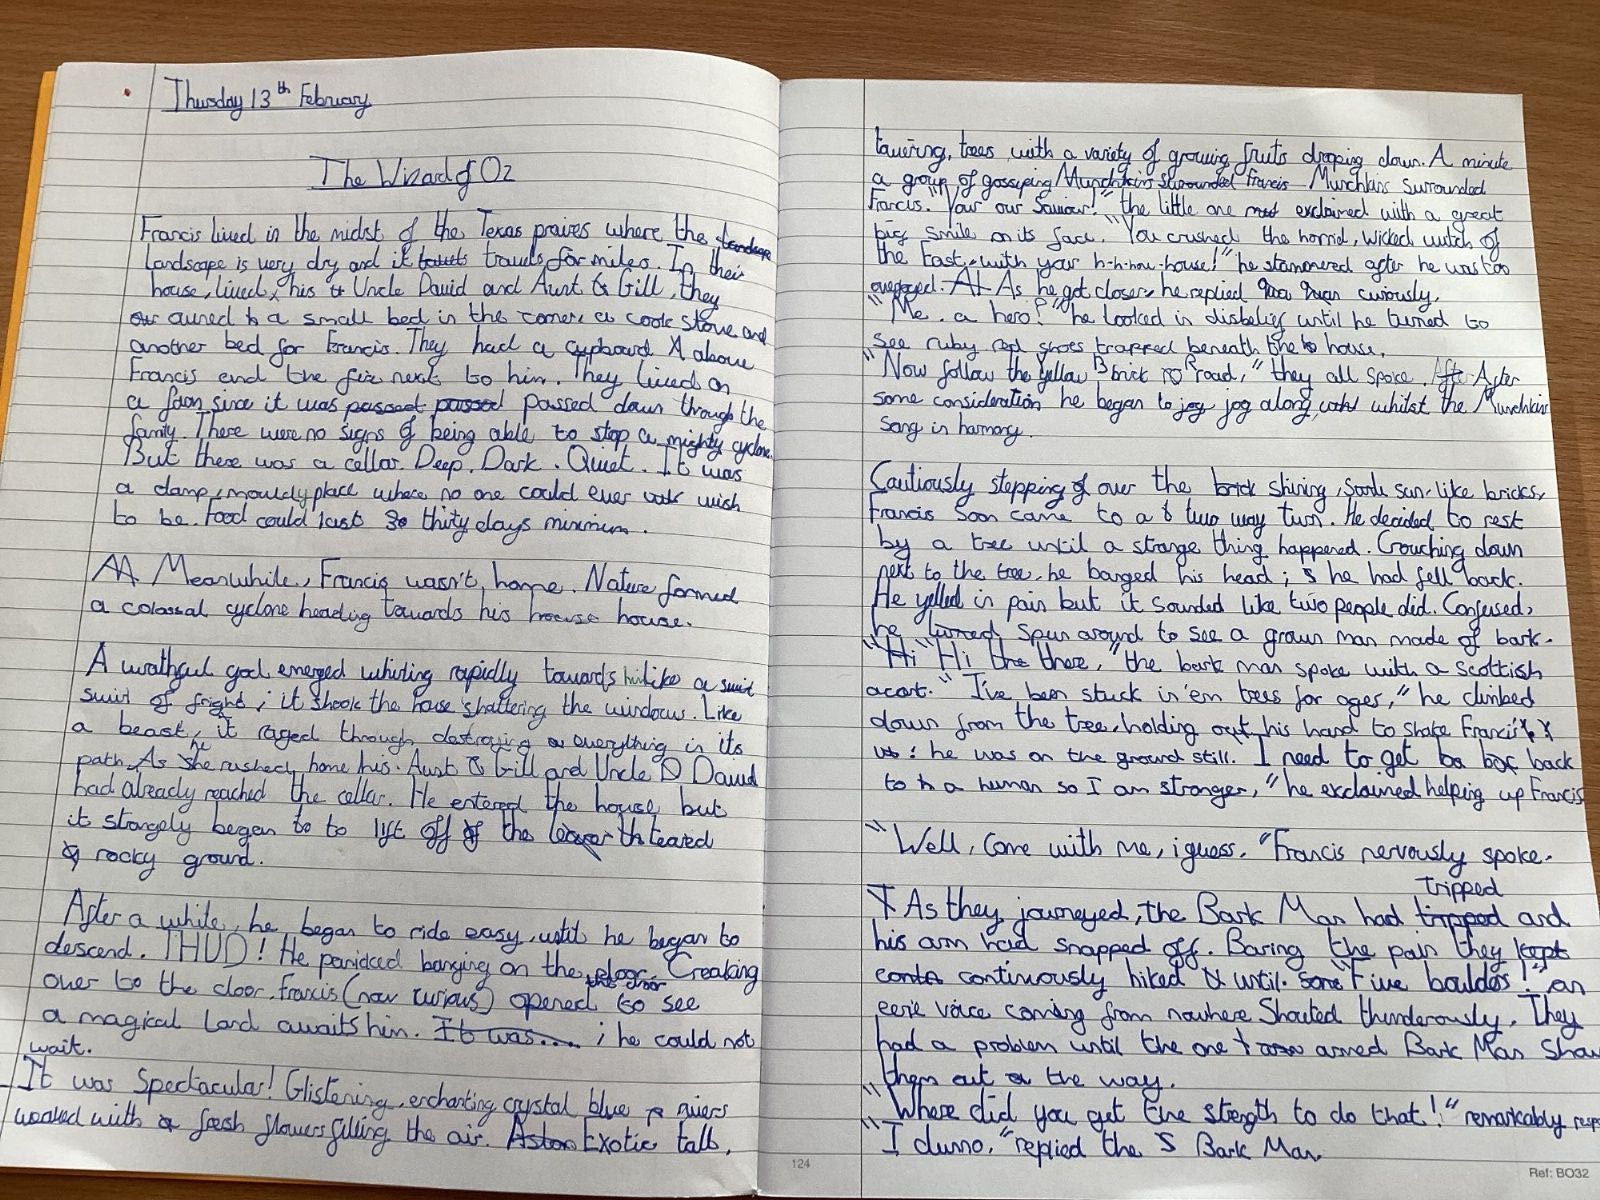 Thursday 13th February
The Wizard of Oz
Francis lived in the midst of the Texas praires where the
landscape is very dry and it travels for miles. In their
house, lived, his Uncle David and Aunt Gill, they
owned a small bed in the corner, a cook stove and
another bed for Francis. They had a cupboard above
Francis and the fire next to him. They lived on
a farm since it was passed down through the
family. There were no signs of being able to stop a mighty cyclone.
But there was a cellar. Deep. Dark. Quiet. It was
a damp, mouldy place where no one could ever wish
to be. Food could last thirty days minimum.
Meanwhile, Francis wasn't home. Nature formed
a colossal cyclone heading towards his house.
A wrathful god emerged whirling rapidly towards him like a
swirl of fright; it shook the house shattering the windows. Like
a beast, it raged through destroying everything in its
path. As he rushed home his Aunt Gill and Uncle David
had already reached the cellar. He entered the house but
it strangely began to lift off the
rocky ground.
After a while, he began to ride easy, until he began to
descend. THUD! He panicked banging on the door. Creaking
over to the door, Francis (now curious) opened to see
a magical land awaits him. ; he could not
wait.
It was spectacular! Glistening, enchanting crystal blue rivers
with fresh flowers filling the air. Exotic tall,
towering, trees with a variety of growing fruits droping down. A minute
a group of gossyping Munchkins surrounded
Francis. "Your our Saviour!" the little one exclaimed with a great
big smile on its face. "You crushed the horrid, wicked witch of
the East, with your h-h-hou-house!" he stammered after he was too
overjoyed. As he got closer, he replied curiously,
"Me, a hero?" he looked in disbelief until he turned to
see ruby red shoes trapped beneath the house.
"Now follow the yellow brick road," they all spoke. After
some consideration he began to jog along whilst the Munchkins
sang in harmony.
Cautiously stepping over the shining, sun-like bricks,
Francis soon came to a two way turn. He decided to rest
by a tree until a strange thing happened. Crouching down
next to the tree, he banged his head; he had fell back.
He yelled in pain but it sounded like two people did. Confused,
he spun around to see a grown man made of bark.
"Hi there," the bark man spoke with a scottish
"I've been stuck in 'em trees for ages," he climbed
down from the tree, holding out his hand to shake Francis'
: he was on the ground still. I need to get back
to a human so I am stronger," he exclaimed helping up Francis
"Well, come with me, i guess. "Francis nervously spoke.
As they journeyed, the Bark Man had tripped and
his arm had snapped off. Baring the pain they
continuously hiked until. "Five boulders!" an
eerie voice coming from nowhere shouted thunderously. They
had a problem until the one armed Bark Man
them out the way.
"Where did you get the strength to do that!" remarkably
"I dunno, "replied the Bark Man.
124
Ref: BO32